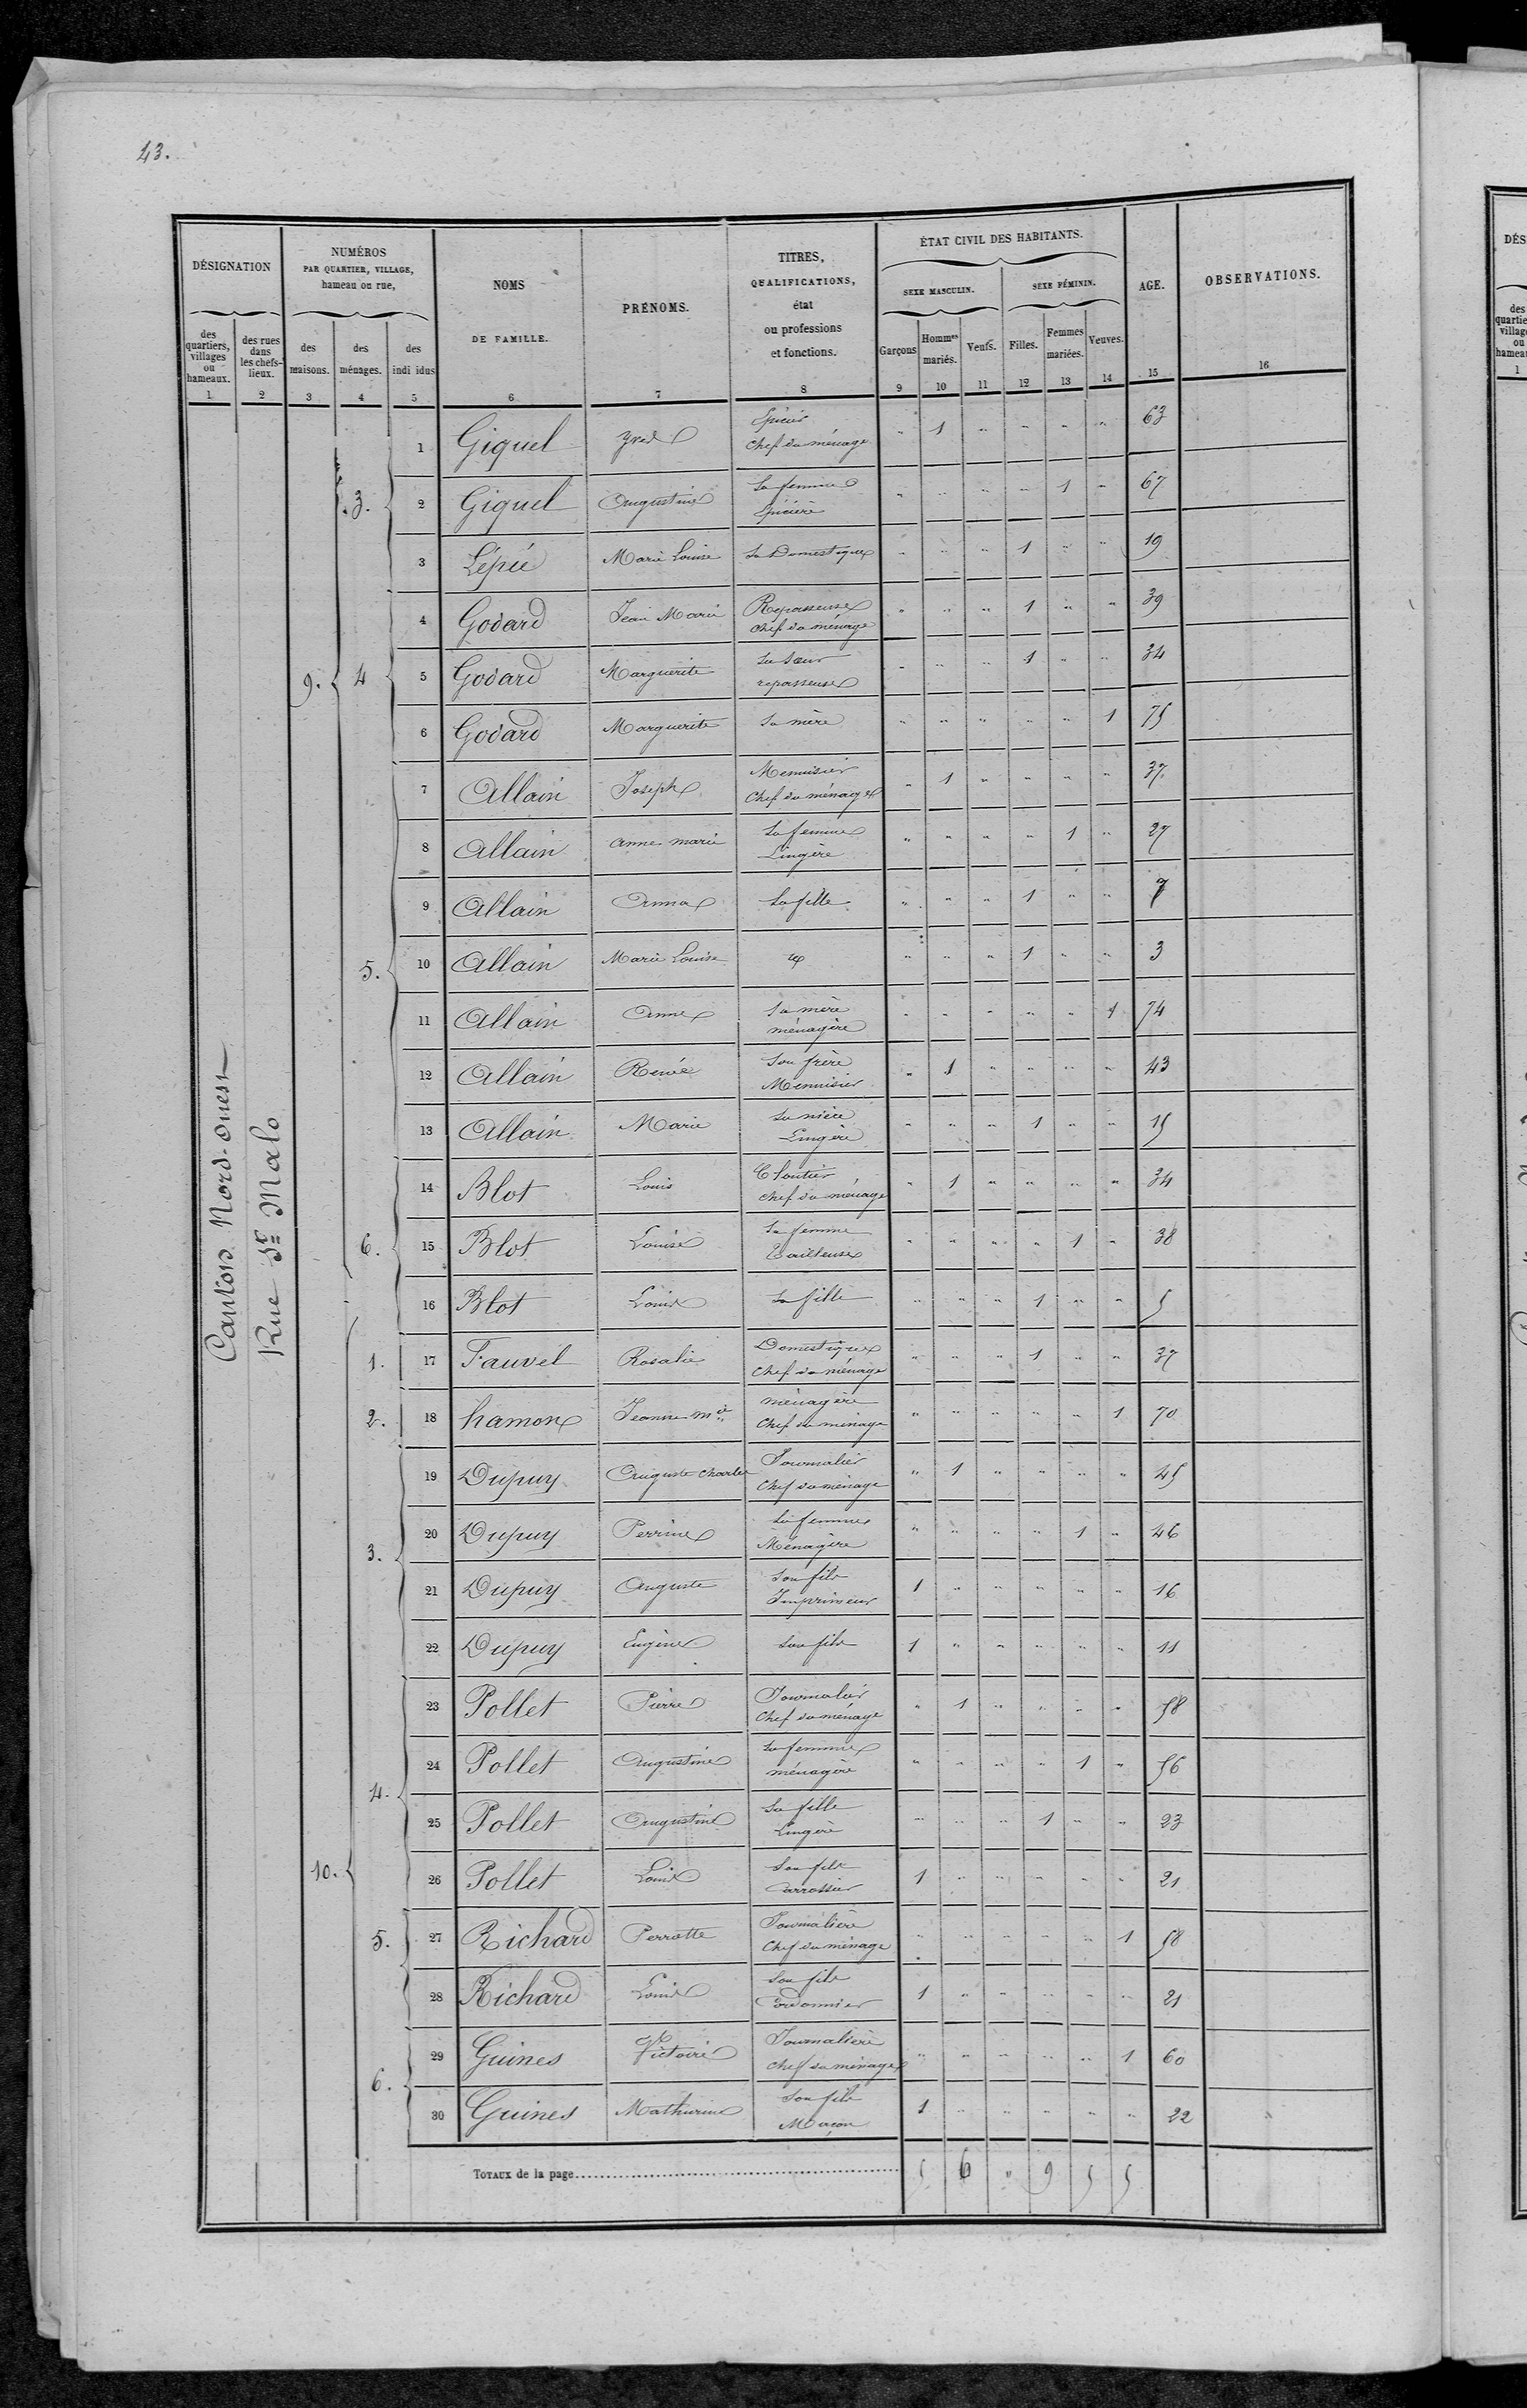 43.
DÉSIGNATION
NUMÉROS
PAR QUARTIER, VILLAGE,
hameau ou rue,
NOMS
DE FAMILLE.
PRÉNOMS.
TITRES,
QUALIFICATIONS,
état
ou professions
et fonctions.
ÉTAT CIVIL DES HABITANTS.
SEXE MASCULIN.
SEXE FÉMININ.
AGE.
OBSERVATIONS.
des quartiers, villages ou hameaux.
des rues dans les chefs-lieux.
des maisons.
des ménages.
des indi idus
Garçons
Hommes mariés.
Veufs.
Filles.
Femmes mariées.
Veuves.
1 2 3 4 5 6 7 8 9 10 11 12 13 14 15 16
Canton Nord-ouest
Rue St Malo
9.
3.
1 Giquel Yves Epicier Chef du ménage " 1 " " " " 63
2 Giquel Augustine Sa femme Epicière " " " " 1 " 67
3 Lépée Marie Louise Sa Domestique " " " 1 " " 19
4
4 Godard Jean Marie Repasseuse Chef du ménage " " " 1 " " 39
5 Godard Marguerite Sa sœur repasseuse " " " 1 " " 34
6 Godard Marguerite Sa mère " " " " " 1 75
5.
7 Allain Joseph Menuisier Chef du ménage " 1 " " " " 37
8 Allain anne marie Sa femme Lingère " " " " 1 " 27
9 Allain Anna Sa fille " " " 1 " " 7
10 Allain Marie Louise " " " 1 " " 3
11 Allain Anne Sa mère ménagère " " " " " 1 74
12 Allain Renée Son frère Menuisier " 1 " " " " 43
13 Allain Marie Sa nièce Lingère " " " 1 " " 15
6.
14 Blot Louis Cloutier chef du ménage " 1 " " " " 34
15 Blot Louise Sa femme Tailleuse " " " " 1 " 38
16 Blot Louise Sa fille " " " 1 " " 5
10.
1.
17 Fauvel Rosalie Domestique Chef du ménage " " " 1 " " 37
2.
18 hamon Jeanne mie ménagère Chef du ménage " " " " " 1 70
3.
19 Dupuy Auguste Charles Journalier Chef du ménage " 1 " " " " 45
20 Dupuy Perrine Sa femme Ménagère " " " " 1 " 46
21 Dupuy Auguste Son fils Imprimeur 1 " " " " " 16
22 Dupuy Eugène Son fils 1 " " " " " 11
4.
23 Pollet Pierre Journalier Chef du ménage " 1 " " " " 58
24 Pollet Augustine Sa femme ménagère " " " " 1 " 56
25 Pollet Augustine Sa fille Lingère " " " 1 " " 23
26 Pollet Louis Son fils Carrossier 1 " " " " " 21
5.
27 Richard Perrotte Journalière Chef du ménage " " " " " 1 58
28 Richard Louis Son fils Cordonnier 1 " " " " " 21
6.
29 Guines Victoire Journalière Chef du ménage " " " " " 1 60
30 Guines Mathurin Son fils Maçon 1 " " " " " 22
TOTAUX de la page 5 6 " 9 5 5
DÉS
des
quartie
village
ou
hamea
1